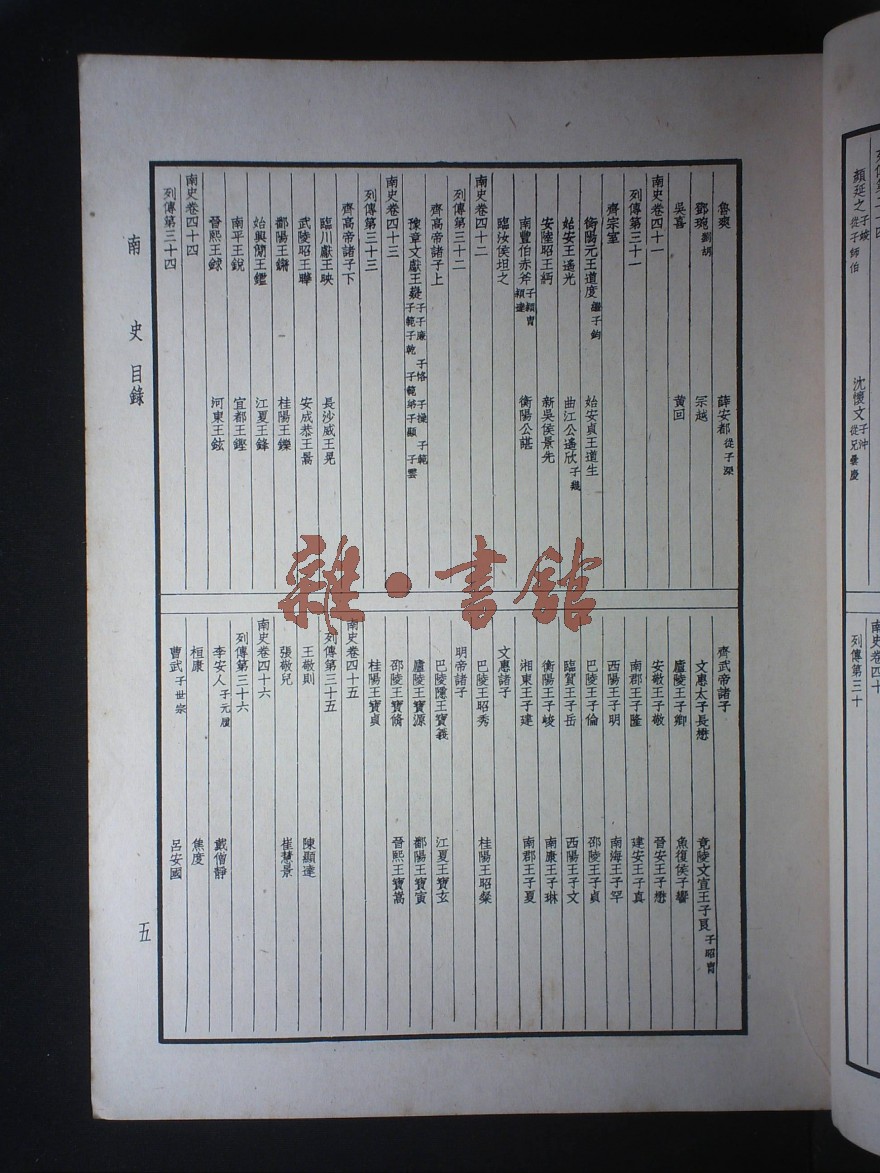 魯爽　薛安都 從子深
鄧琬 劉胡　宗越
吳喜　黃回
南史卷四十一
列傳第三十一
齊宗室
衡陽元王道度 繼子鈞　始安貞王道生
始安王遙光　曲江公遙欣 子幾
安陸昭王緬　新吳侯景先
南豐伯赤斧 子穎胄 穎達　衡陽公諶
臨汝侯坦之
南史卷四十二
列傳第三十二
齊高帝諸子上
豫章文獻王嶷 子子廉 子恪 子操 子範 子範子乾 子範弟子顯 子雲
南史卷四十三
列傳第三十三
齊高帝諸子下
臨川獻王映　長沙威王晃
武陵昭王曄　安成恭王暠
鄱陽王鏘　桂陽王鑠
始興簡王鑑　江夏王鋒
南平王銳　宜都王鏗
晉熙王銶　河東王鉉
南史卷四十四
列傳第三十四
齊武帝諸子
文惠太子長懋　竟陵文宣王子良 子昭胄
廬陵王子卿　魚復侯子響
安敬王子敬　晉安王子懋
南郡王子隆　建安王子真
西陽王子明　南海王子罕
巴陵王子倫　邵陵王子貞
臨賀王子岳　西陽王子文
衡陽王子峻　南康王子琳
湘東王子建　南郡王子夏
文惠諸子
巴陵王昭秀　桂陽王昭粲
明帝諸子
巴陵隱王寶義　江夏王寶玄
廬陵王寶源　鄱陽王寶寅
邵陵王寶脩　晉熙王寶嵩
桂陽王寶貞
南史卷四十五
列傳第三十五
王敬則　陳顯達
張敬兒　崔慧景
南史卷四十六
列傳第三十六
李安人 子元履　戴僧靜
桓康　焦度
曹武 子世宗　呂安國
南史目錄
五
雜·書館
顏延之 子竣 從子師伯
沈懷文 子沖 從兄曇慶
南史卷四十
列傳第三十